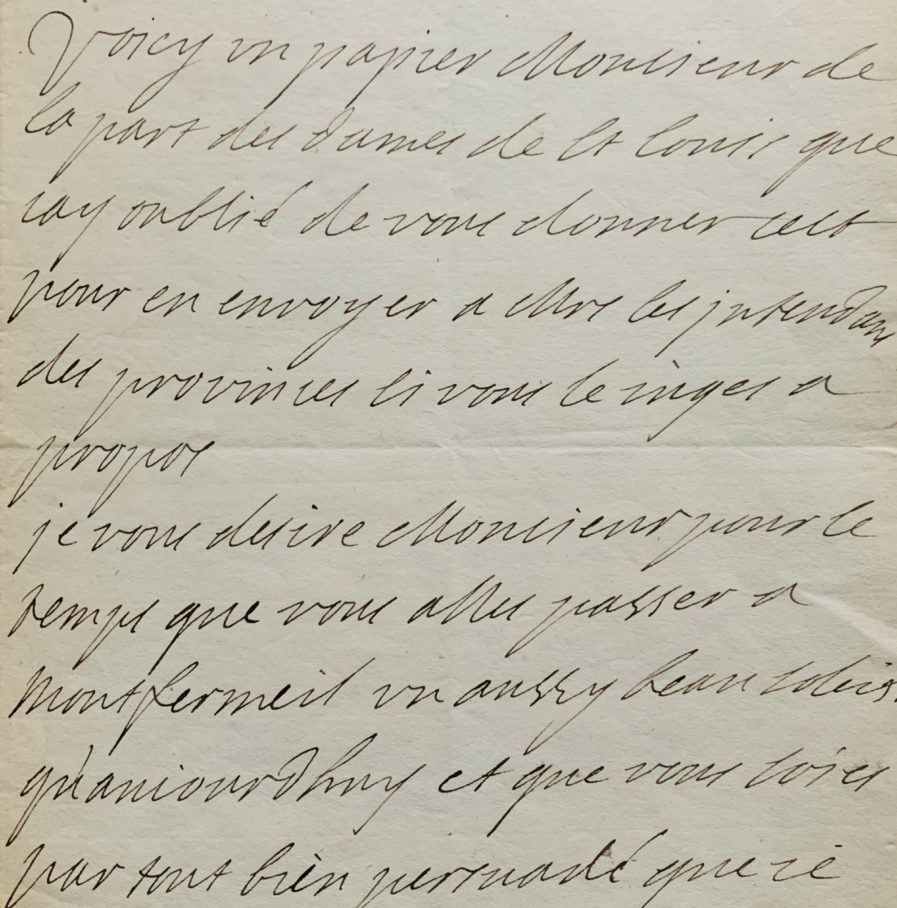 Voicy un papier Monsieur de
la part des dames de St Louis que
iay oublié de vous donner cest
pour en envoyer a Mrs les jntendans
des provinces si vous le iuges a
propos
je vous desire Monsieur pour le
temps que vous alles passer a
montfermeil un aussy beau soleis
qu'auiourdhuy et que vous soies
par tout bien persuadé que ie